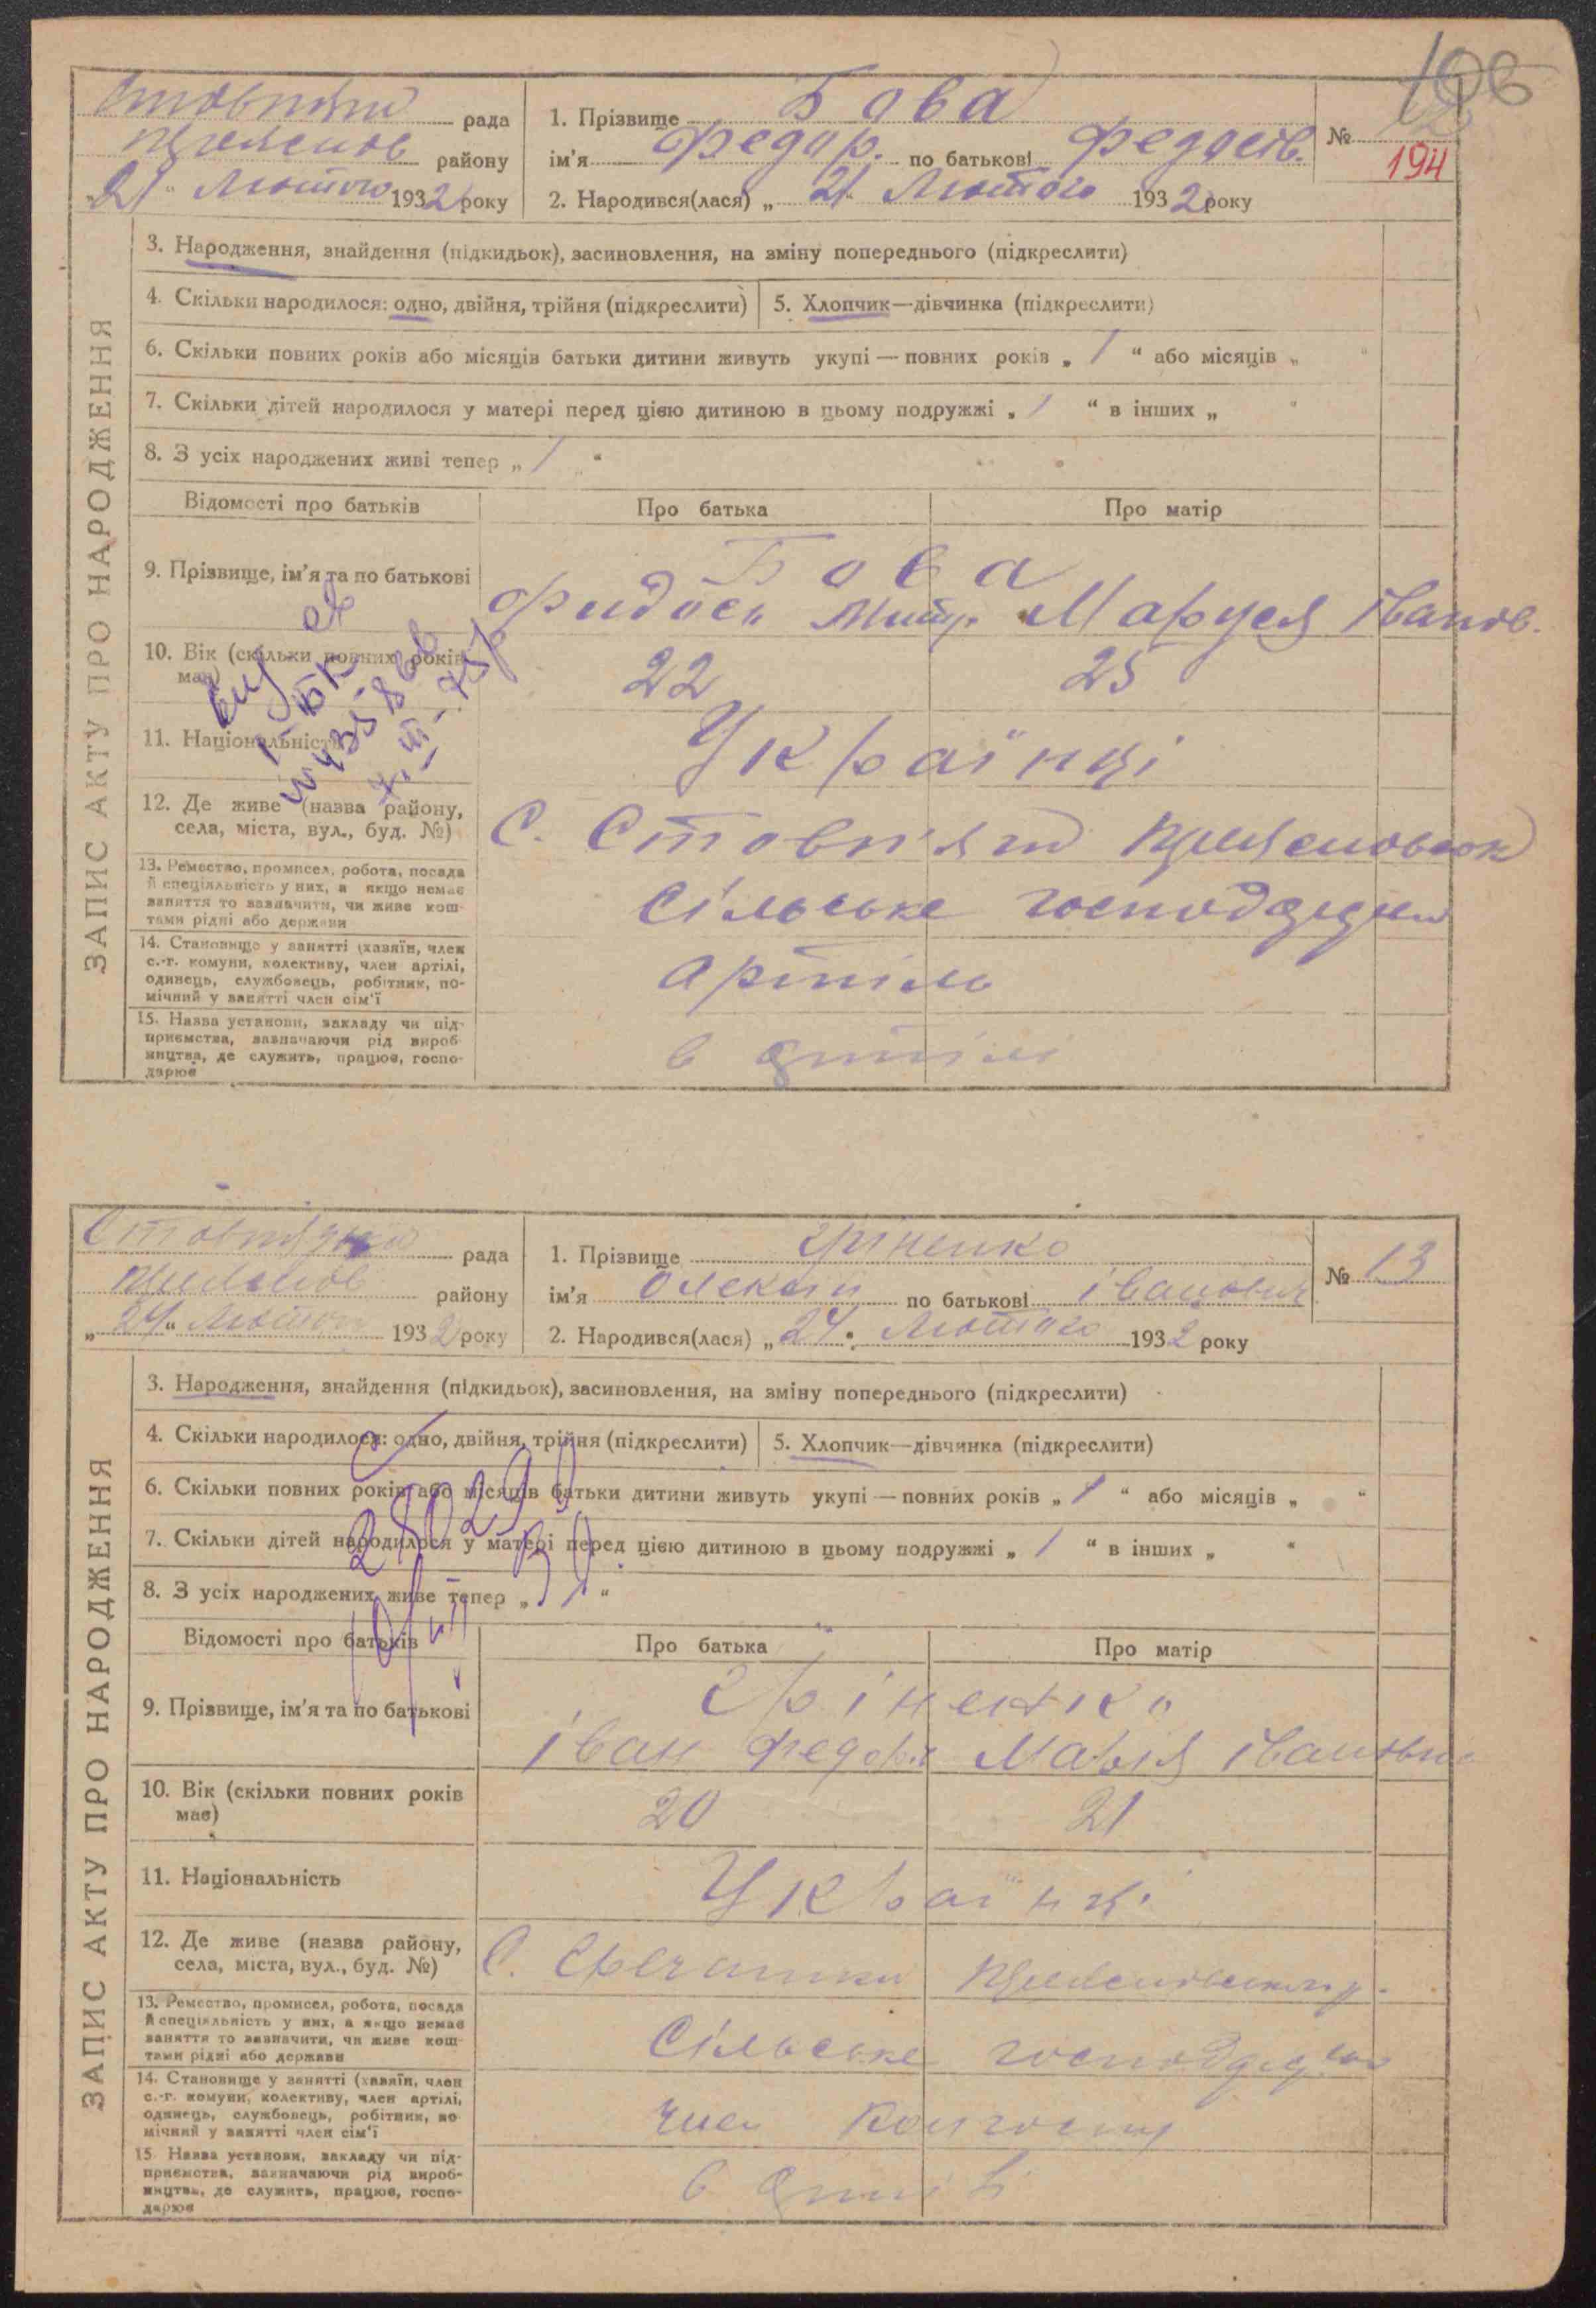 106
рада 1. Прізвище Бова № 12
району ім'я Федор. по батькові Федосів. 194
„21" Лютого 1932 року 2. Народився(лася) „21" Лютого 1932 року
ЗАПИС АКТУ ПРО НАРОДЖЕННЯ
3. Народження, знайдення (підкидьок), засиновлення, на зміну попереднього (підкреслити)
4. Скільки народилося: одно, двійня, трійня (підкреслити) 5. Хлопчик—дівчинка (підкреслити)
6. Скільки повних років або місяців батьки дитини живуть укупі — повних років „ 1 " або місяців „ "
7. Скільки дітей народилося у матері перед цією дитиною в цьому подружжі „ 1 " в інших „ "
8. З усіх народжених живі тепер „ 1 "
Відомості про батьків Про батька Про матір
9. Прізвище, ім'я та по батькові Бова
Федось Маруся Іванов.
10. Вік (скільки повних років має) 22 25
11. Національність Українці
12. Де живе (назва району,
села, міста, вул., буд. №) С. Стовп'яги
13. Ремество, промисел, робота, посада
й спеціяльність у них, а якщо немає
заняття то зазначити, чи живе кош-
тами рідні або держави Сільське
14. Становище у занятті (хазяїн, член
с.-г. комуни, колективу, член артілі,
одинець, службовець, робітник, по-
мічний у занятті член сім'ї артіль
15. Назва установи, закладу чи під-
приємства, зазначаючи рід вироб-
ництва, де служить, працює, госпо-
дарює в артілі
рада 1. Прізвище Гріненко № 13
району ім'я Олексій по батькові Іванович
„24" Лютого 1932 року 2. Народився(лася) „24" Лютого 1932 року
ЗАПИС АКТУ ПРО НАРОДЖЕННЯ
3. Народження, знайдення (підкидьок), засиновлення, на зміну попереднього (підкреслити)
4. Скільки народилося: одно, двійня, трійня (підкреслити) 5. Хлопчик—дівчинка (підкреслити)
6. Скільки повних років або місяців батьки дитини живуть укупі — повних років „ 1 " або місяців „ "
7. Скільки дітей народилося у матері перед цією дитиною в цьому подружжі „ 1 " в інших „ "
8. З усіх народжених живе тепер „ "
Відомості про батьків Про батька Про матір
9. Прізвище, ім'я та по батькові Гріненко
Іван Федор. Марія Іванівна
10. Вік (скільки повних років
має) 20 21
11. Національність Українці
12. Де живе (назва району,
села, міста, вул., буд. №) С.
13. Ремество, промисел, робота, посада
й спеціяльність у них, а якщо немає
заняття то зазначити, чи живе кош-
тами рідні або держави Сільське
14. Становище у занятті (хазяїн, член
с.-г. комуни, колективу, член артілі,
одинець, службовець, робітник, по-
мічний у занятті член сім'ї член колгоспу
15. Назва установи, закладу чи під-
приємства, зазначаючи рід вироб-
ництва, де служить, працює, госпо-
дарює в артілі